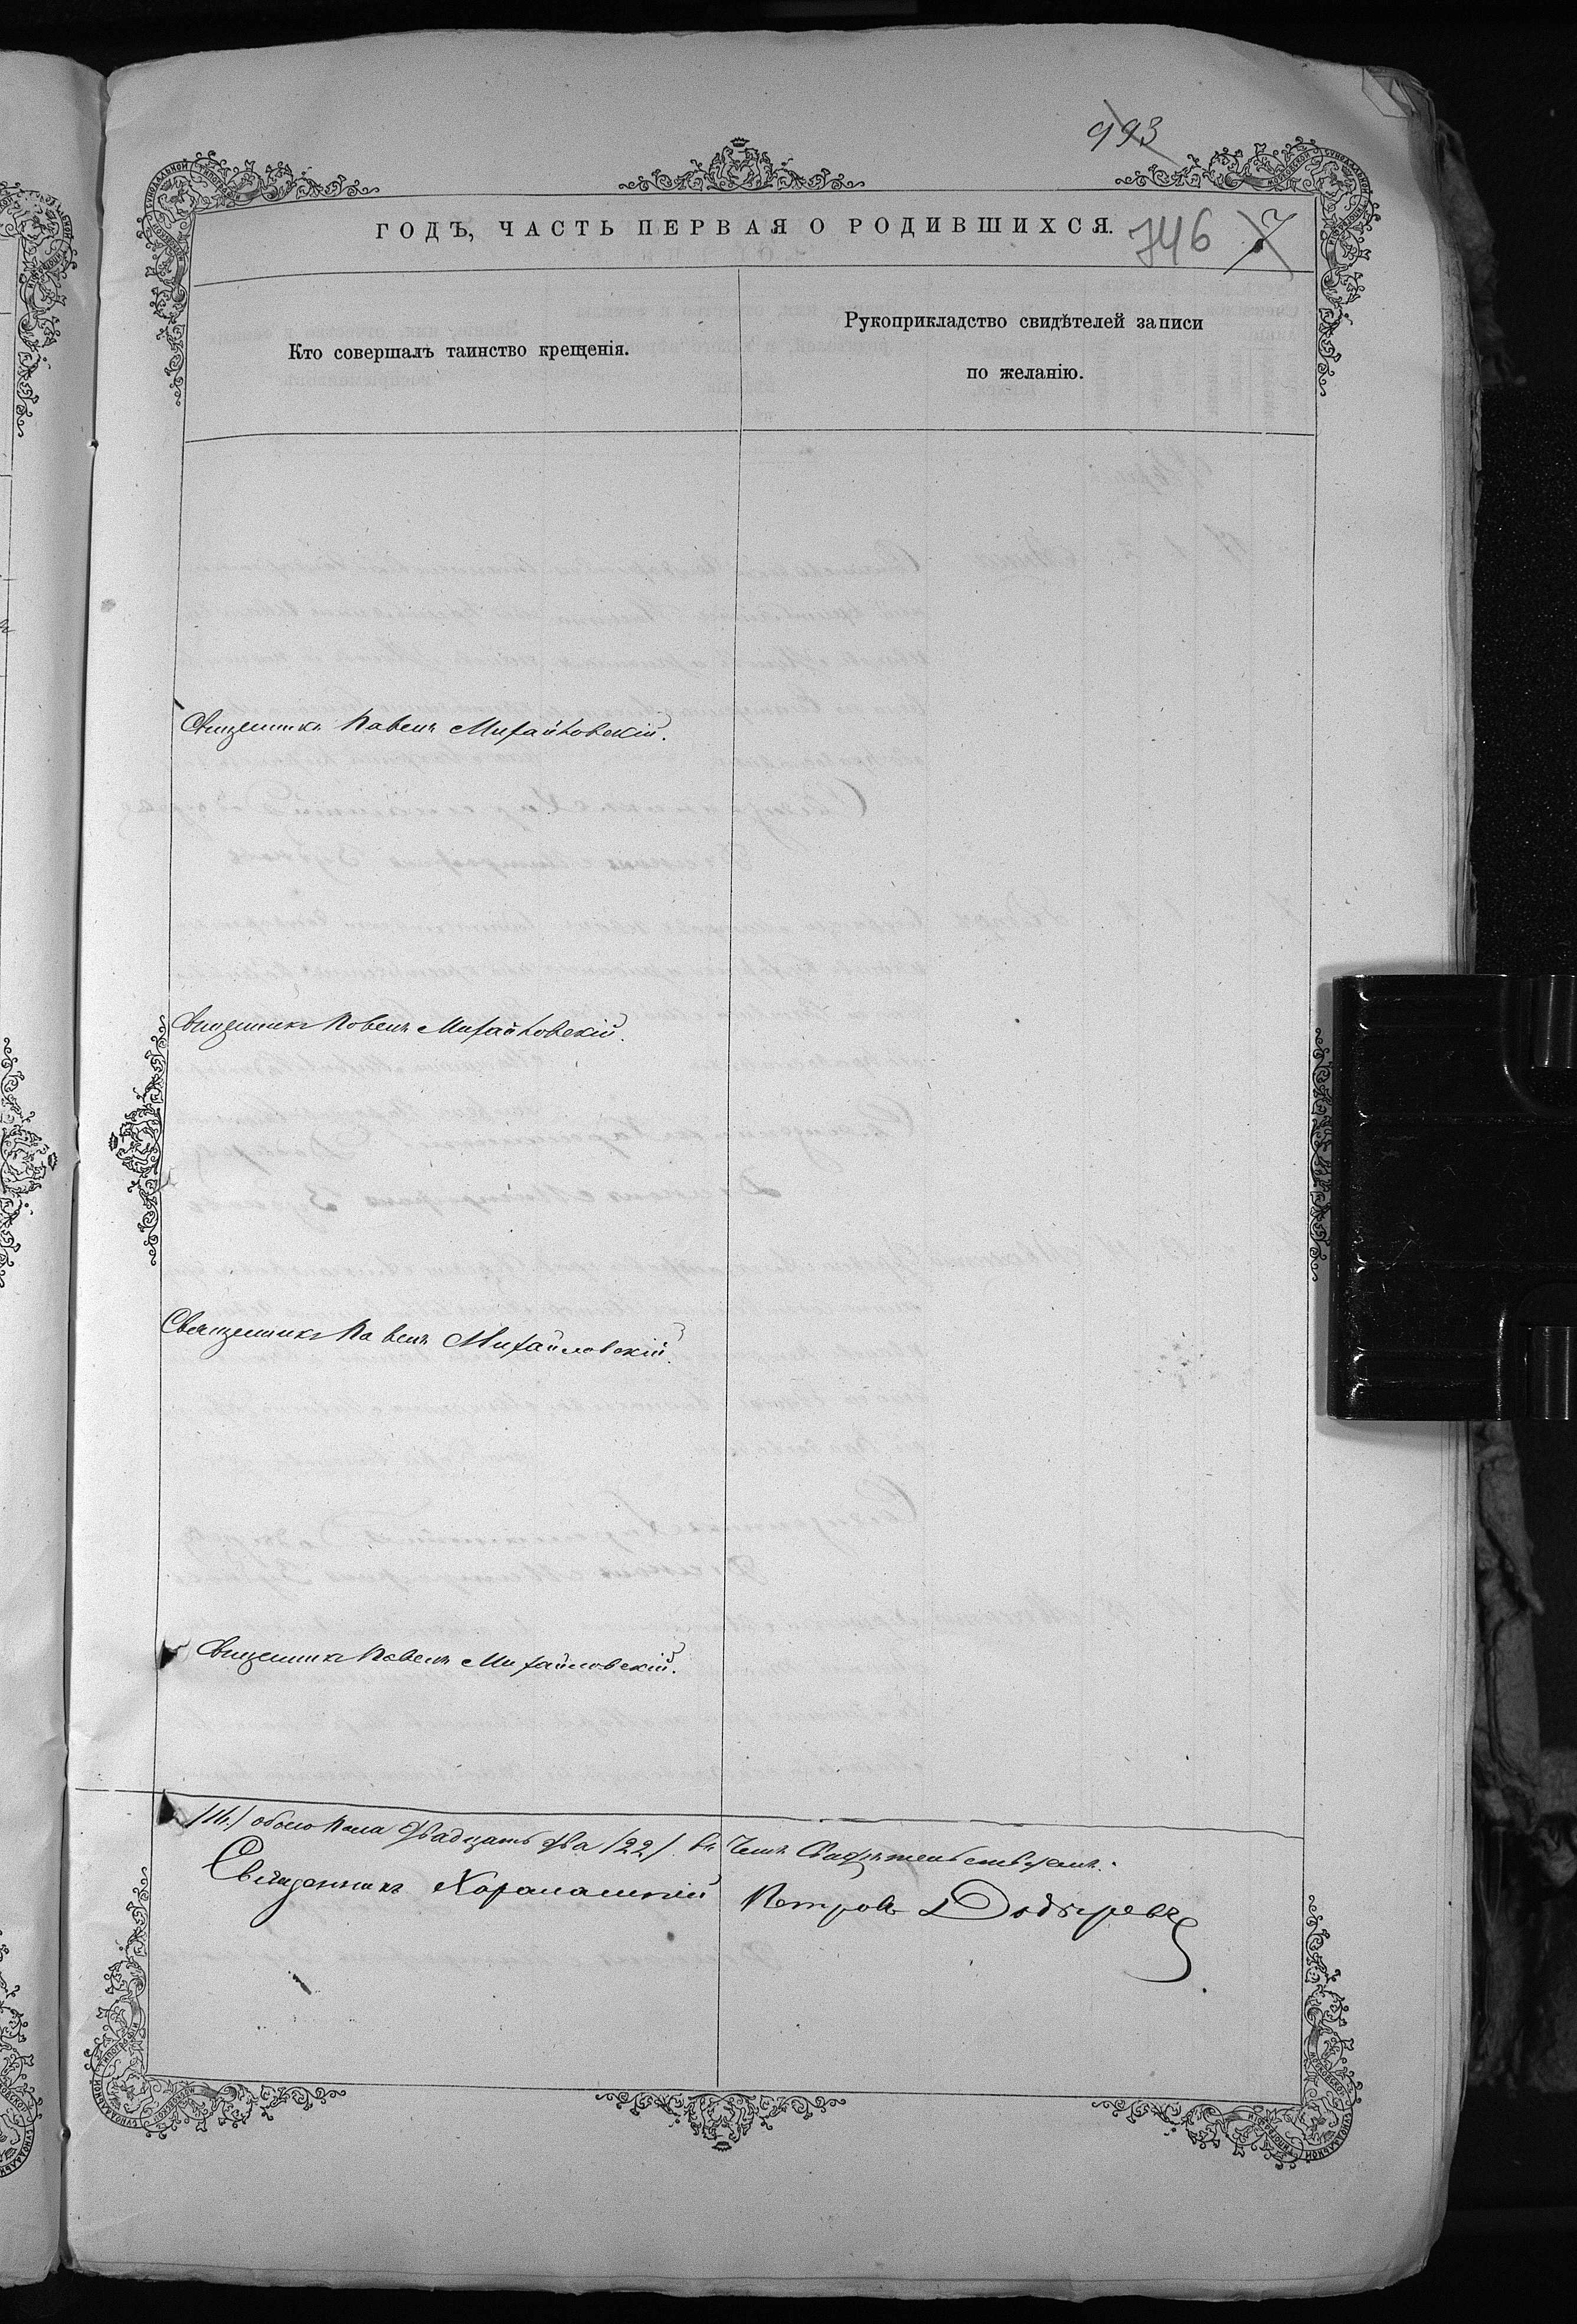 993
ГОДЪ, ЧАСТЬ ПЕРВАЯ О РОДИВШИХСЯ. 746 7
Кто совершалъ таинство крещенія.
Рукоприкладство свидѣтелей записи
по желанію.
Священникъ Павелъ Михайловскій.
Священникъ Павелъ Михайловскій.
Священникъ Павелъ Михайловскій.
Священникъ Павелъ Михайловскій.
обоего пола двадцать два /22/. въ чемъ свидѣтельствуемъ.
Священникъ